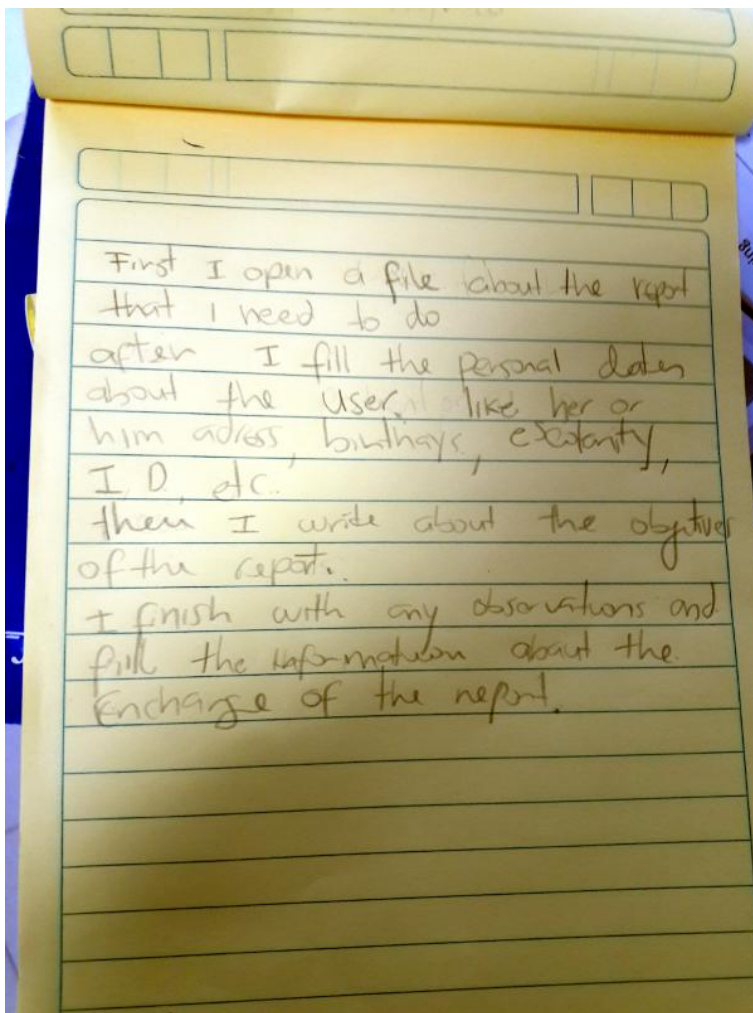 First I open a file about the report
that I need to do
after I fill the personal dates
about the user, like her or
him adress, birthays, escolarity,
I.D, etc.
then I write about the objetives
of the report.
I finish with any observations and
fill the information about the
encharge of the report.